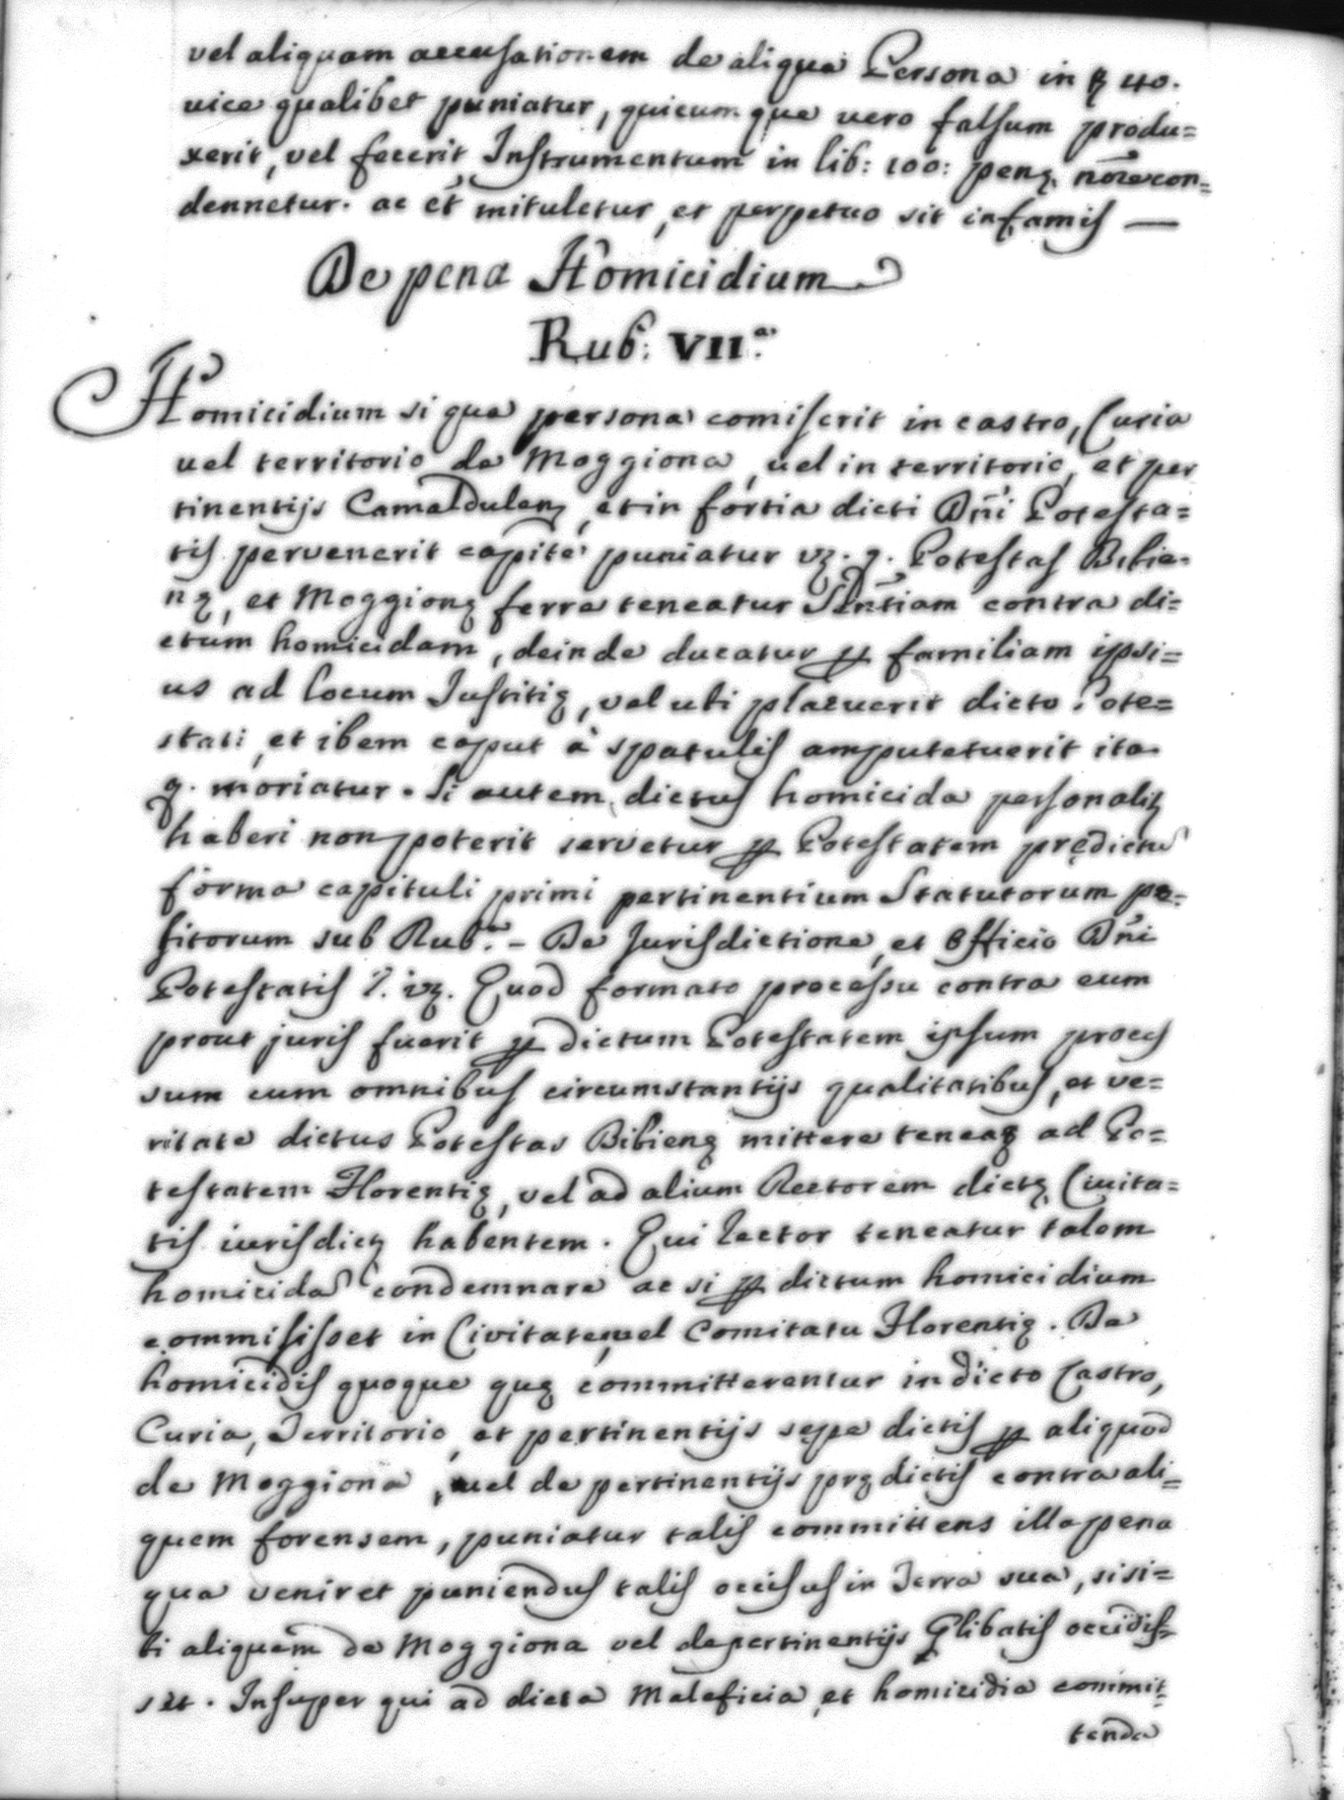 vel aliquam accusationem de aliqua Persona in ꝶ 40.
vice qualibet puniatur, quicumque vero falsum produ=
xerit, vel fecerit Instrumentum in lib: 100: penę noĩe con=
dennetur. ac et mituletur, et perpetuo sit infamis —
De pena Homicidium
Rub: VII.ª
Homicidium si qua persona comiserit in castro, Curia
vel territorio de Moggiona, vel in territorio, et per
tinentijs Camaldulen, et in fortia dicti Dñi Potesta=
tis pervenerit capite puniatur vz. q. Potestas Bibie=
nę, et Moggionę ferre teneatur Sñtiam contra di=
ctum homicidam, deinde ducatur ꝑ familiam ipsi=
us ad locum Justitię, vel ubi placuerit dicto Pote=
stati, et ibem caput à spatulis amputetuerit ita
q. moriatur. Si autem dictus homicida personalit
haberi non poterit servetur ꝑ Potestatem prędictũ
forma capituli primi pertinentium Statutorum po=
sitorum sub Rub.ª - De Jurisdictione, et Officio Dñi
Potestatis vz. Quod formato processu contra eum
prout juris fuerit ꝑ dictum Potestatem ipsum proces
sum cum omnibus circumstantijs qualitatibus, et ve=
ritate dictus Potestas Bibienę mittere teneaꝶ ad Po=
testatem Florentię, vel ad alium Rectorem dictę Civita=
tis iurisdict habentem. Qui Rector teneatur talem
homicidã condemnare ac si ꝑ dictum homicidium
commisisset in Civitate, vel Comitatu Florentię. De
homicidis quoque quę committerentur in dicto Castro,
Curia, Territorio, et pertinentijs sepe dictis ꝑ aliquod
de Moggiona, vel de pertinentijs prędictis contra ali=
quem forensem, puniatur talis committens illa pena
qua veniret puniendus talis occisus in Terra sua, si si=
bi aliquem de Moggiona vel de pertinentijs Plibatis occidis=
set. Insuper qui ad dicta Maleficia, et homicidia commit=
tenda